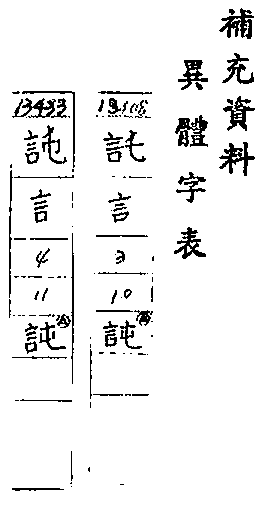 補充資料
異體字表
言
3
10
訰
13433
訰
言
4
11
訰